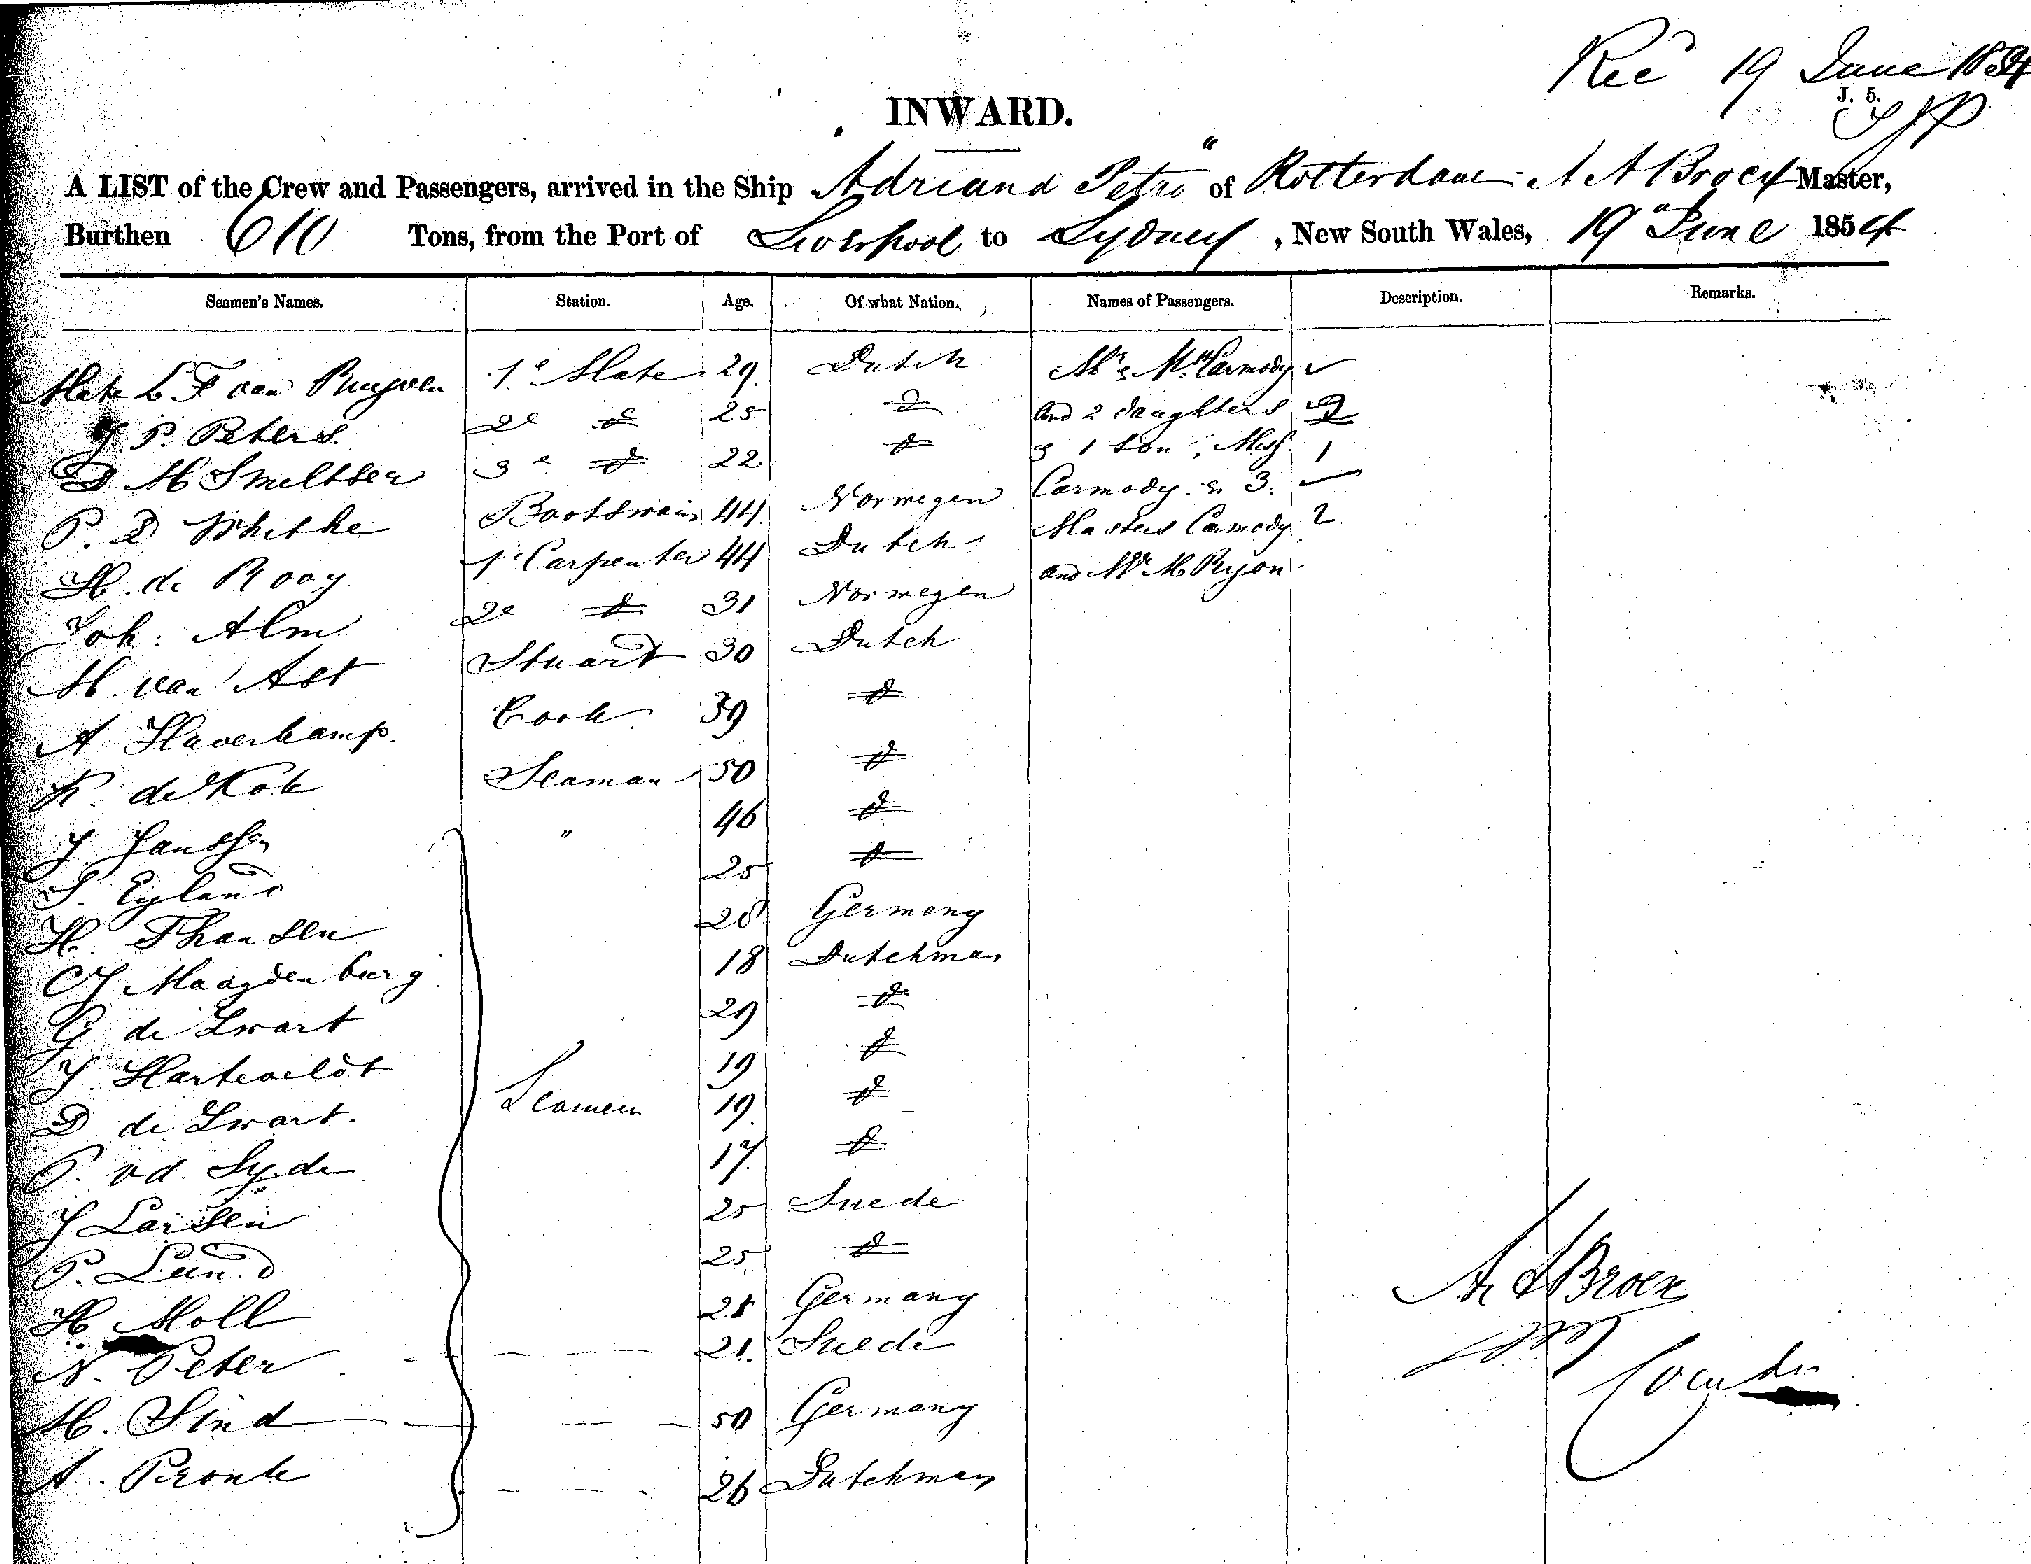 Rec'd 19 June 1854
J. 5.
INWARD.
A LIST of the Crew and Passengers, arrived in the Ship "Adriana Petro" of Rotterdam A A Broex Master,
Burthen 610 Tons, from the Port of Liverpool to Sydney, New South Wales, 19 June 1854
Seamen's Names. Station. Age. Of what Nation. Names of Passengers. Description. Remarks.
L F van 1e Mate 29 Dutch Mr & Mrs Carmody
J P. Peters 2e do 25 do and 2 daughters 2
D M Smeltser 3e do 22 do & 1 son, Miss 1
P. D Whithe Bootswain 44 Norwegen Carmody & 3
H. de Rooy 1e Carpenter 44 Dutch Masters Carmody 2
Joh. Alm 2e do 31 Norwegen and Mr M Ryon
H. van Ast Stuard 30 Dutch
A Haverkamp. Cook 39 do
K. de Kok Seaman 50 do
J Janssen " 46 do
S. Eyland 25 do
H. Thansen 28 Germany
CJ Maagdenburg 18 Dutchman
G de Zwart 29 do
J Harteveldt 19 do
D de Zwart. Seamen 19 do
P. v d Syde 17 do
J Larsen 25 Suede
P. Lund 25 do
H. Moll 28 Germany
N. Peter 21. Suede
M. Sind 50 Germany
A. Pronk 26 Dutchman
A Broex